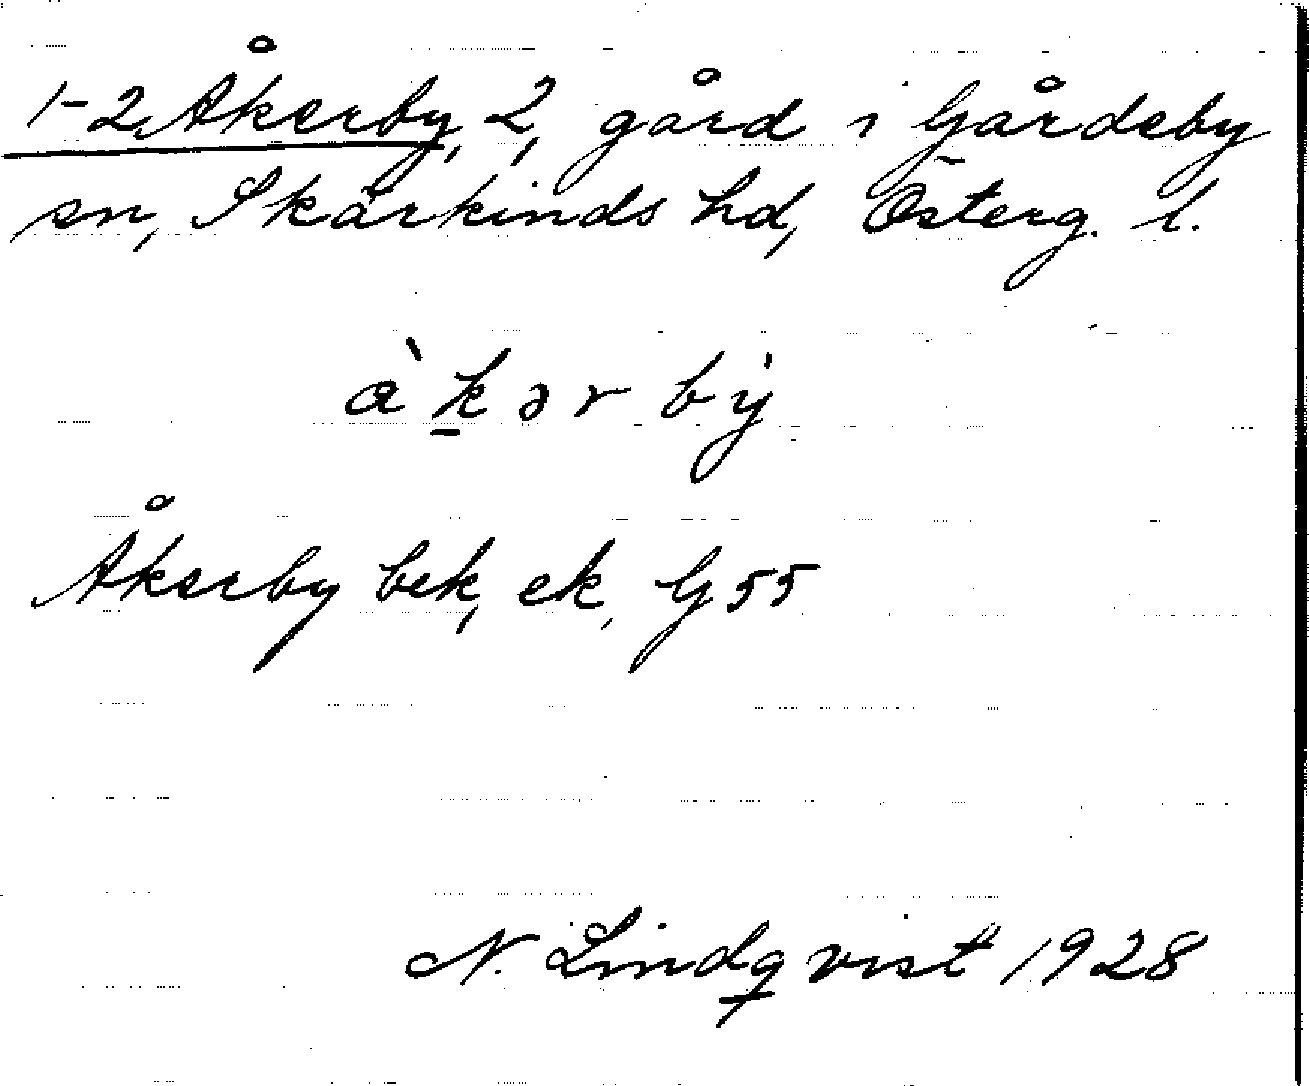 1-2 Åkerby, 2, gård i Gårdeby
sn, Skärkinds hd, Österg. l.
a`kərby`
Åkerby bek, ek, G 55
N. Lindqvist 1928